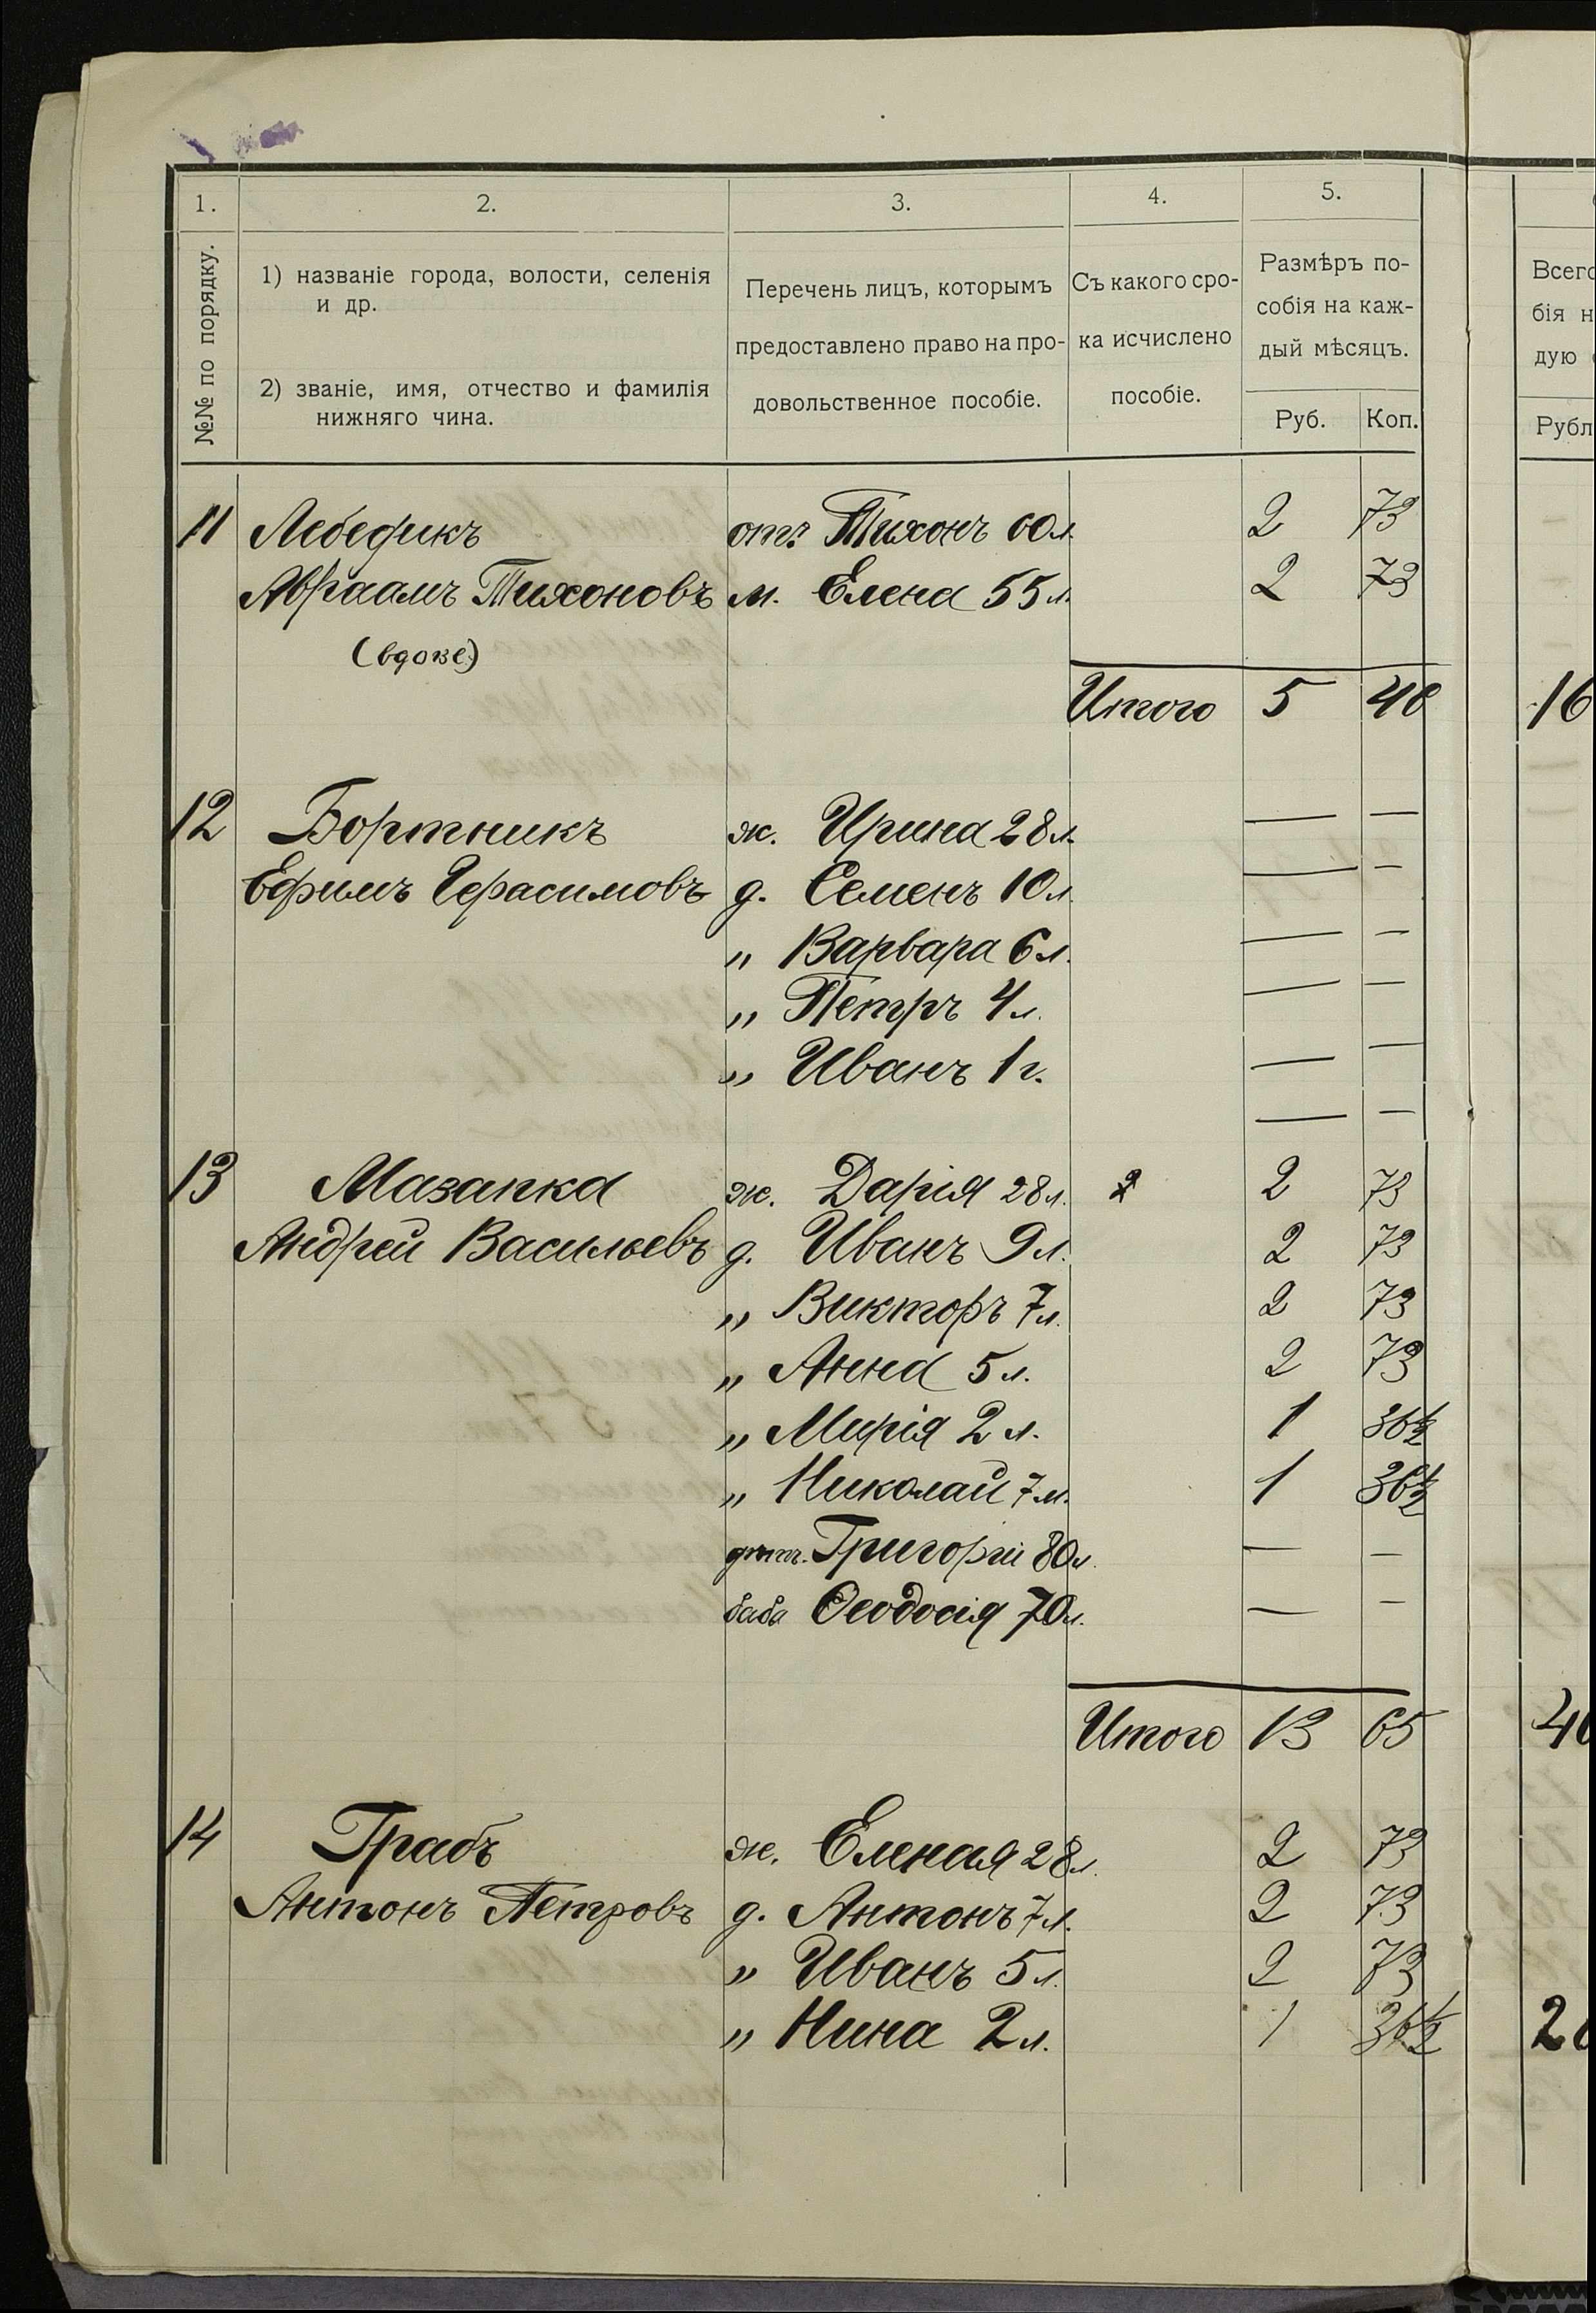 1. 2. 3. 4. 5.
№№ по порядку.
1) названіе города, волости, селенія
и др.
2) званіе, имя, отчество и фамилія
нижняго чина.
Перечень лицъ, которымъ
предоставлено право на про-
довольственное пособіе.
Съ какого сро-
ка исчислено
пособіе.
Размѣръ по-
собія на каж-
дый мѣсяцъ.
Руб. Коп.
Всего
бія н
дую
Рубл
11 Лебедикъ отъ Тихонъ 60 л. 2 73
Авраамъ Тихоновъ м. Елена 55 л. 2 73
(вдове)
Итого 5 46 16
12 Бортникъ ж. Ирина 28 л. — —
Ефимъ Герасимовъ д. Семенъ 10 л. — —
„ Варвара 6 л. — —
„ Петръ 4 л. — —
„ Иванъ 1 г. — —
— —
13 Мазапка ж. Дарія 28 л. 2 73
Андрей Васильевъ д. Иванъ 9 л. 2 73
„ Викторъ 7 л. 2 73
„ Анна 5 л. 2 73
„ Марія 2 л. 1 36½
„ Николай 7 м. 1 36½
Григорій 80 л. — —
баба Ѳеодосія 70 л. — —
Итого 13 65 40
14 Грабъ ж. Еленая 28 л. 2 73
Антонъ Петровъ д. Антонъ 7 л. 2 73
„ Иванъ 5 л. 2 73
„ Нина 2 л. 1 36½ 2